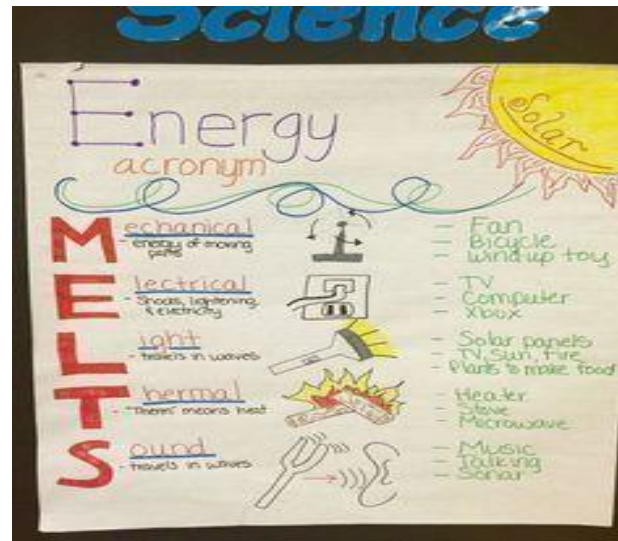 Science
Energy
acronym
Solar
Mechanical
- energy of moving
parts
- Fan
- Bicycle
- Wind up toy
Electrical
- Shocks, lightening,
& electricity
- TV
- Computer
- Xbox
Light
- travels in waves
- Solar panels
- TV, Sun, Fire
- Plants to make food
Thermal
- "Therm" means heat
- Heater
- Stove
- Microwave
Sound
- travels in waves
- Music
- Talking
- Sonar